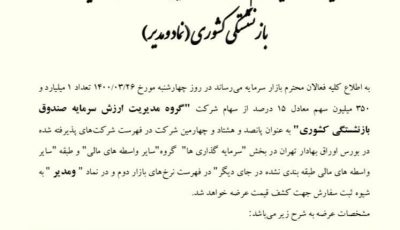 بازنشستگی کشوری (نماد ومدیر)
به اطلاع کلیه فعالان محترم بازار سرمایه می‌رساند در روز چهارشنبه مورخ ۱۴۰۰/۰۳/۲۶ تعداد ۱ میلیارد و
۳۵۰ میلیون سهم معادل ۱۵ درصد از سهام شرکت "گروه مدیریت ارزش سرمایه صندوق
بازنشستگی کشوری" به عنوان پانصد و هشتاد و چهارمین شرکت در فهرست شرکت‌های پذیرفته شده
در بورس اوراق بهادار تهران در بخش "سرمایه گذاری ها" گروه"سایر واسطه های مالی" و طبقه "سایر
واسطه های مالی طبقه بندی نشده در جای دیگر" در فهرست نرخ‌های بازار دوم و در نماد " ومدیر " به
شیوه ثبت سفارش جهت کشف قیمت عرضه خواهد شد.
مشخصات عرضه به شرح زیر می‌باشد: